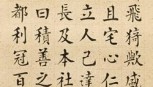 飛猗
且宅心仁
立人己達
長及本社
曰積善之
都利冠百